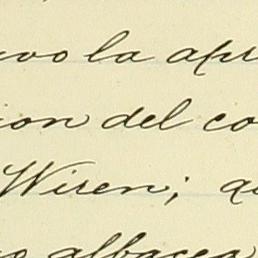 uvo la apr
ion del co
Wisen; qu
albacea